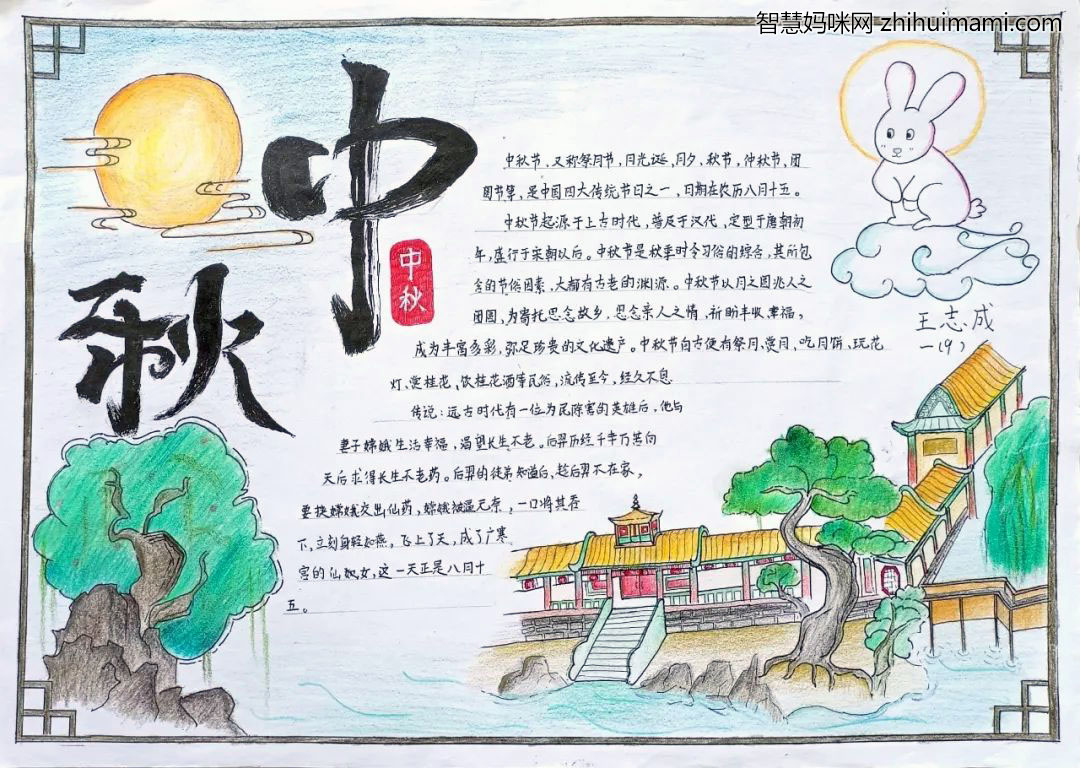 智慧妈咪网 zhihuimami.com
中秋
中秋
中秋节，又称祭月节，月光诞，月夕，秋节，仲秋节，团
圆节等，是中国四大传统节日之一，日期在农历八月十五。
中秋节起源于上古时代，普及于汉代，定型于唐朝初
年，盛行于宋朝以后。中秋节是秋季时令习俗的综合，其所包
含的节俗因素，大都有古老的渊源。中秋节以月之圆兆人之
团圆，为寄托思念故乡，思念亲人之情，祈盼丰收幸福，
成为丰富多彩，弥足珍贵的文化遗产。中秋节自古便有祭月、赏月、吃月饼、玩花
灯、赏桂花、饮桂花酒等民俗，流传至今，经久不息
传说：远古时代有一位为民除害的英雄后，他与
妻子嫦娥生活幸福，渴望长生不老。后羿历经千辛万苦向
天后求得长生不老药。后羿的徒弟知道后，趁后羿不在家，
要挟嫦娥交出仙药，嫦娥被逼无奈，一口将其吞
下，立刻身轻如燕，飞上了天，成了广寒
宫的仙女，这一天正是八月十
五。
王志成
一(9)